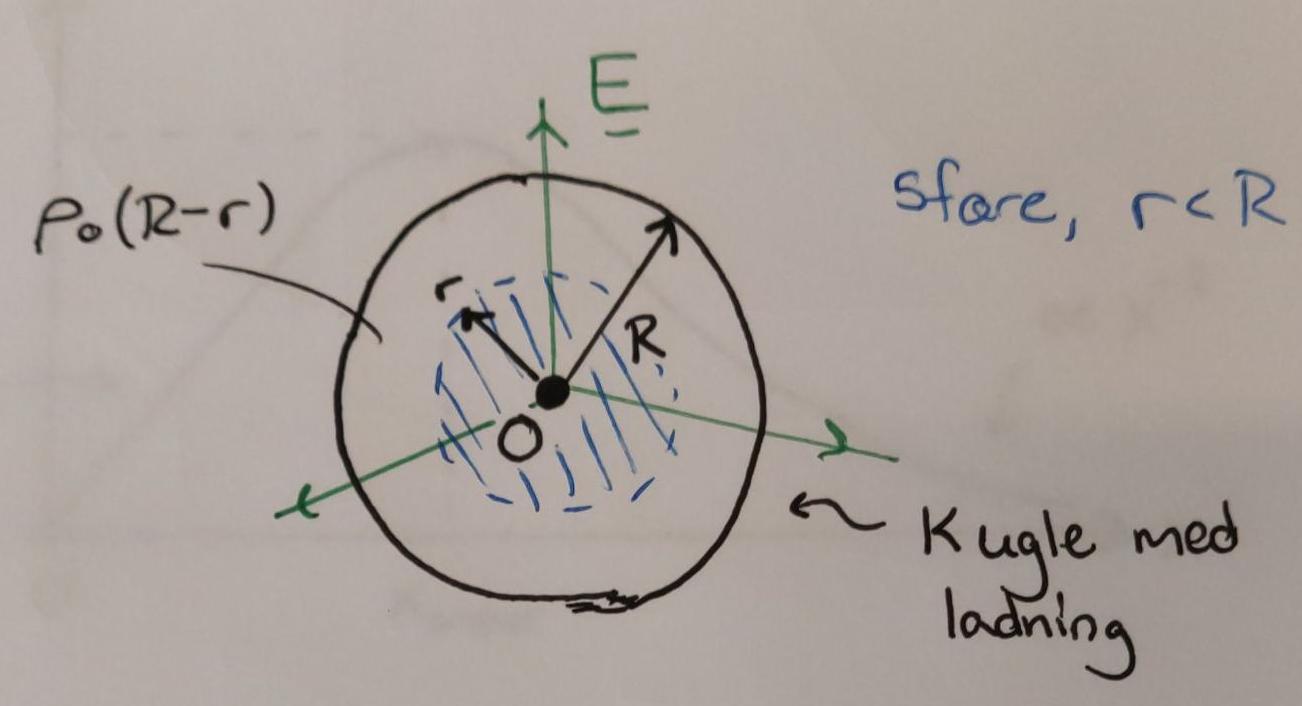 E
ρ₀(R-r)
sfære, r<R
r
R
O
Kugle med
ladning